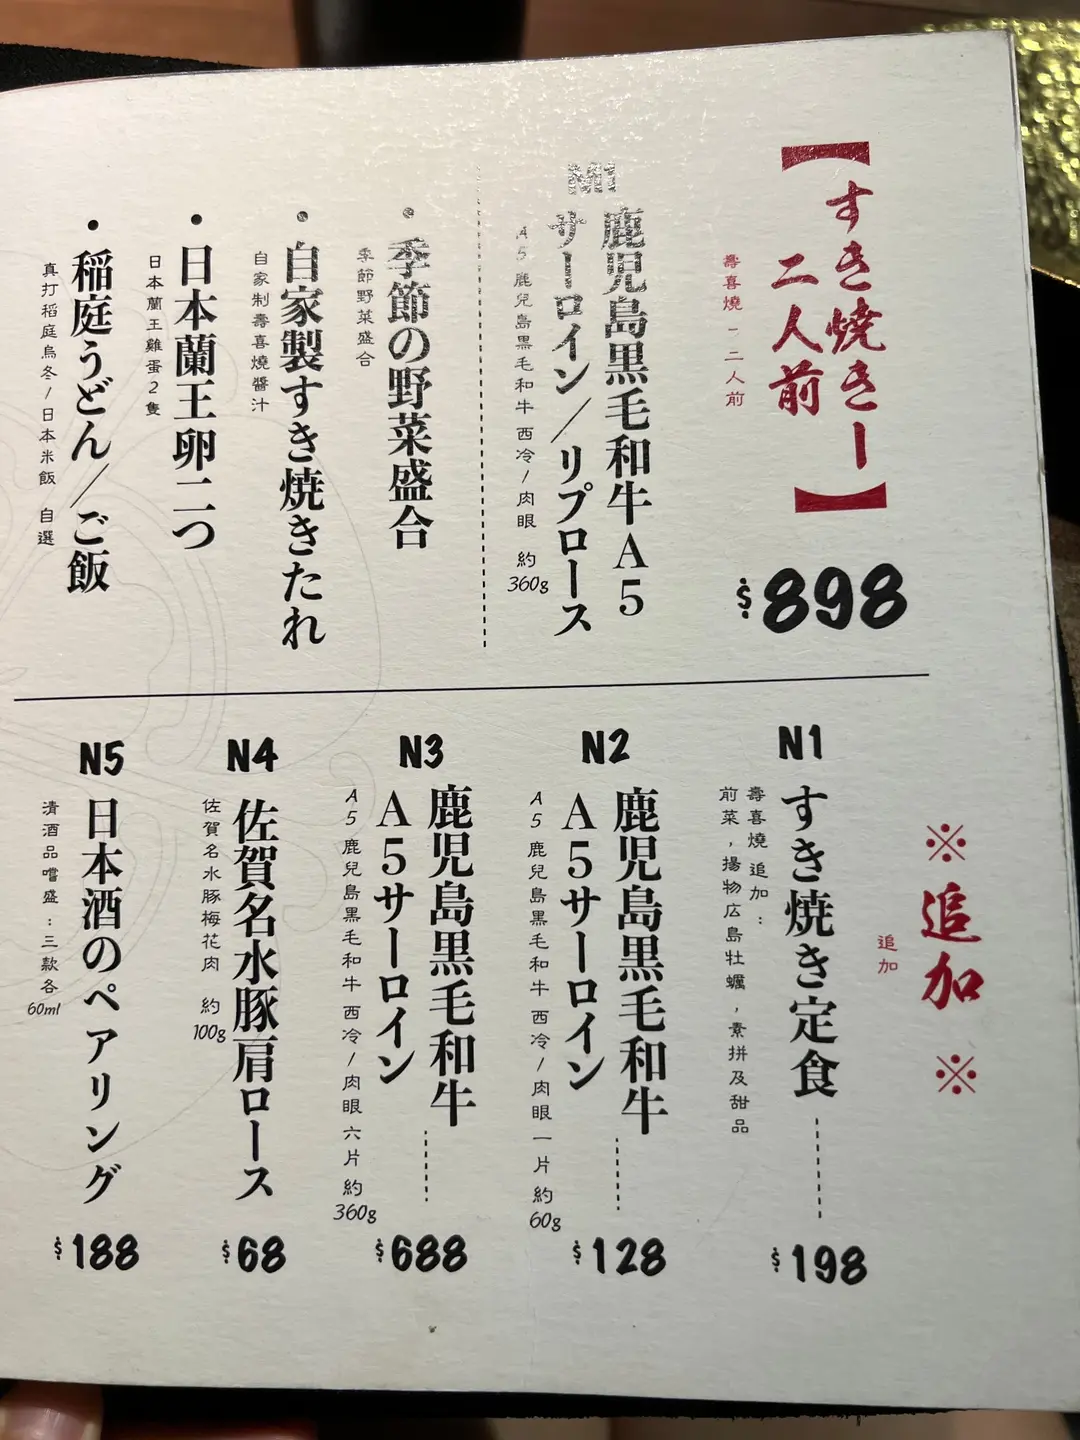 【すき焼きー
二人前】
壽喜燒 - 二人前
$898
鹿児島黒毛和牛A5
サーロイン/リブロース
A5 鹿兒島黑毛和牛 西冷/肉眼 約360g
・季節の野菜盛合
季節野菜盛合
・自家製すき焼きたれ
自家制壽喜燒醬汁
・日本蘭王卵二つ
日本蘭王雞蛋2隻
・稲庭うどん/ご飯
真打稻庭烏冬/日本米飯 自選
※追加※
追加
N1
すき焼き定食
壽喜燒 追加：
前菜，揚物広島牡蠣，素拼及甜品
$198
N2
鹿児島黒毛和牛
A5サーロイン
A5 鹿兒島黑毛和牛 西冷/肉眼 一片 約60g
$128
N3
鹿児島黒毛和牛
A5サーロイン
A5 鹿兒島黑毛和牛 西冷/肉眼 六片 約360g
$688
N4
佐賀名水豚肩ロース
佐賀名水豚梅花肉 約100g
$68
N5
日本酒のペアリング
清酒品嚐盛：三款各60ml
$188